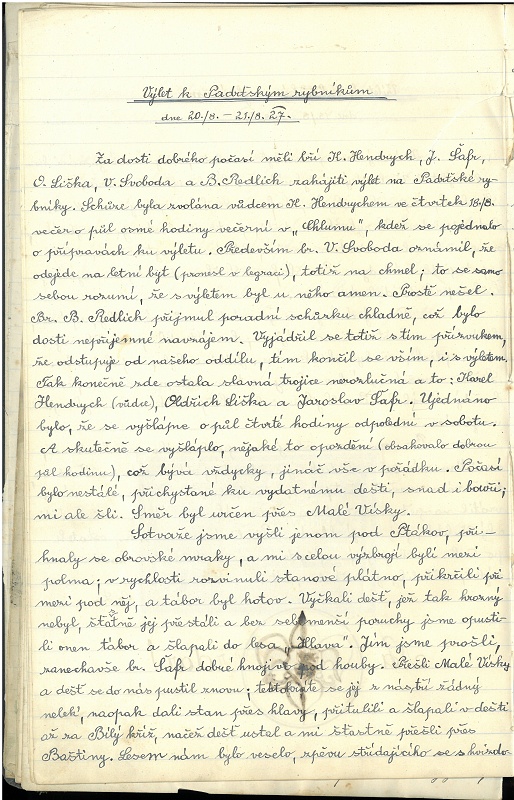 Výlet k Padrťským rybníkům
dne 20./8. – 21./8. 27.
Za dosti dobrého počasí měli bří H. Hendrych, J. Šafr,
O. Liška, V. Svoboda a B. Redlich zahájiti výlet na Padrťské ry-
bníky. Schůze byla svolána vůdcem H. Hendrychem ve čtvrtek 18./8.
večer o půl osmé hodiny večerní v „Chlumu“, kdež se pojednalo
o přípravách ku výletu. Především br. V. Svoboda oznámil, že
odejede na letní byt (pronesl v legraci), totiž na chmel; to se samo
sebou rozumí, že s výletem byl u něho amen. Prostě nešel.
Br. B. Redlich přijmul poradní schůzku chladně, což bylo
dosti nepříjemné navzájem. Vyjádřil se totiž s tím přízvukem,
že odstupuje od našeho oddílu, tím končil se vším, i s výletem.
Tak konečně zde ostala slavná trojice nerozlučná a to: Karel
Hendrych (vůdce), Oldřich Liška a Jaroslav Šafr. Ujednáno
bylo, že se vyšlápne o půl čtvrté hodiny odpolední v sobotu.
A skutečně se vyšláplo, nějaké to opozdění (obsahovalo dobrou
půl hodinu), což bývá vždycky, jináč vše v pořádku. Počasí
bylo nestálé, přichystané ku vydatnému dešti, snad i bouři;
mi ale šli. Směr byl určen přes Malé Vísky.
Sotvaže jsme vyšli jenom pod Ptákov, při-
hnaly se obrovské mraky, a mi s celou výzbrojí byli mezi
polma; v rychlosti rozvinuli stanové plátno, přikrčili při
mezi pod něj, a tábor byl hotov. Vyčkali dešť, jež tak hrozný
nebyl, šťatně jej přestáli a bez sebemenší poruchy jsme opusti-
li onen tábor a šlapali do lesa „Hlava“. Jím jsme prošli,
zanechavše br. Šafr dobré hnojivo pod houby. Přešli Malé Vísky
a dešť se do nás pustil znovu; tentokráte se jej z nás tří žádný
nelekl, naopak dali stan přes hlavy, přitulili a šlapali v dešti
až za Bílý kříž, načež dešť ustal a mi šťastně přešli přes
Baštiny. Lesem nám bylo veselo, zpěvu střídajícího se s hvízdo-